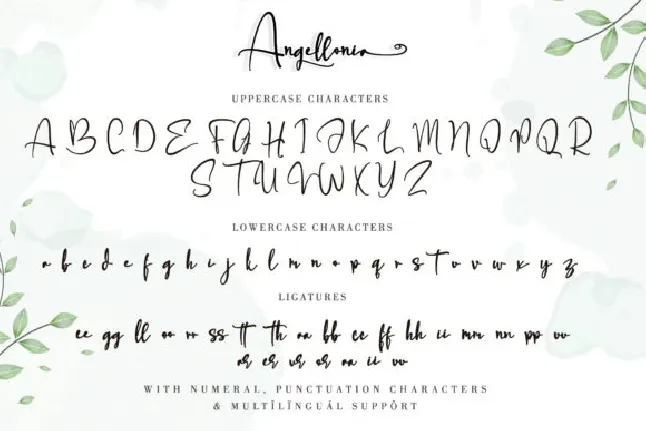 Angellonia
UPPERCASE CHARACTERS
A B C D E F G H I J K L M N O P Q R
S T U V W X Y Z
LOWERCASE CHARACTERS
a b c d e f g h i j k l m n o p q r s t u v w x y z
LIGATURES
ee gg ll oo rr ss tt th aa bb cc ff hh ii mm nn pp
WITH NUMERAL, PUNCTUATION CHARACTERS
& MULTĪLĪNGUÁL SUPPÓRT